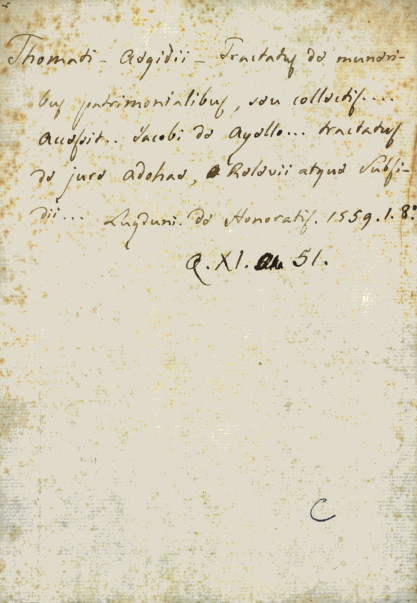 Thomati - Aegidii - Tractatus de muneri-
bus patrimonialibus, seu collectis....
Accessit.. Jacobi de Ayello... tractatus
de jure Adohae, Relevii atque Subsi-
dii... Lugduni. de Honoratis. 1559. 1. 8.
Q. XI. 51.
C